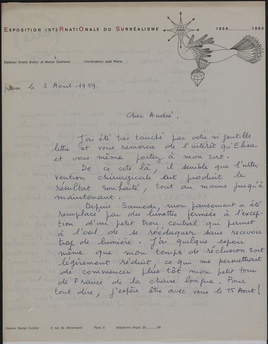 EXPOSITION INTERNATIONALE DU SURRÉALISME
1959 1960
Paris le 3 Août 1959.
Cher André,
J'ai été très touché par votre si gentille
lettre et vous remercie de l'intérêt qu'Elisa
et vous même portez à mon sort.
De ce côté là, il semble que l'inter-
vention chirurgicale ait produit le
résultat souhaité, tout au moins jusqu'à
maintenant.
Depuis Samedi, mon pansement a été
remplacé par des lunettes fermées à l'excep-
tion d'un petit trou central qui permet
à l'œil de se rééduquer sans recevoir
trop de lumière. J'ai quelque espoir
même que mon temps de réclusion soit
légèrement réduit, ce qui me permettrait
de commencer plus tôt mon petit tour
de France de la chaise longue. Pour
tout dire, j'espère être avec vous le 15 Août!